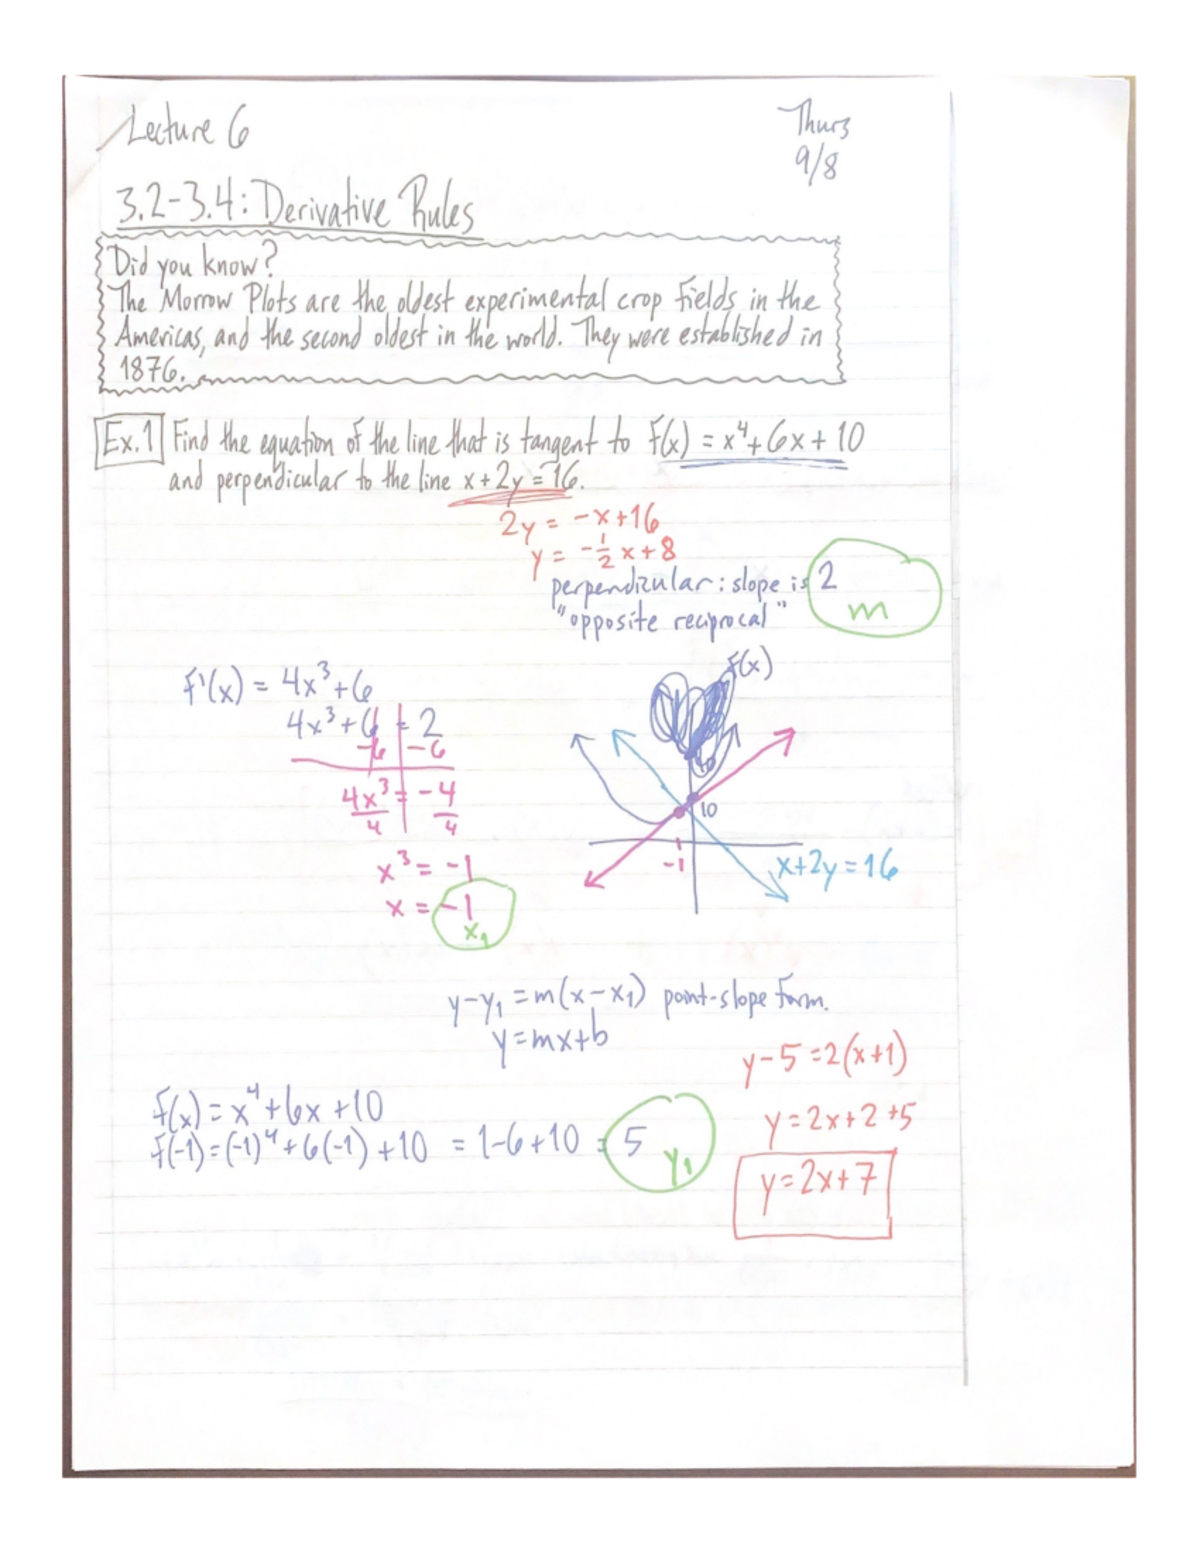 Lecture 6
Thurs
9/8
3.2-3.4: Derivative Rules
Did you know?
The Morrow Plots are the oldest experimental crop fields in the
Americas, and the second oldest in the world. They were established in
1876.
Ex.1 Find the equation of the line that is tangent to f(x) = x⁴+6x+10
and perpendicular to the line x+2y=16.
2y = -x+16
y = -½x+8
perpendicular: slope is 2
"opposite reciprocal"
m
f'(x) = 4x³+6
4x³+6 = 2
-6 -6
4x³ = -4
4 4
x³ = -1
x = -1
x₁
f(x)
10
-1
x+2y=16
y-y₁=m(x-x₁) point-slope form.
y=mx+b
f(x)=x⁴+6x+10
f(-1)=(-1)⁴+6(-1)+10 = 1-6+10 = 5
y₁
y-5=2(x+1)
y=2x+2+5
y=2x+7